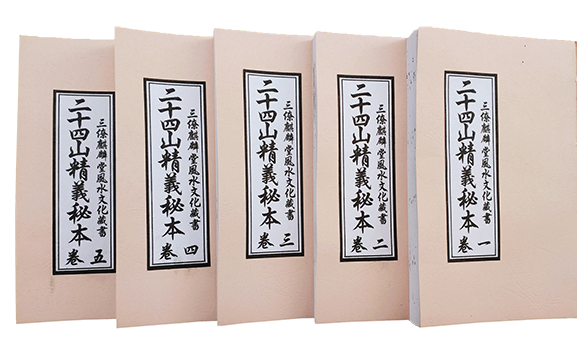 三僚麒麟堂風水文化藏書
二十四山精義秘本
卷一
三僚麒麟堂風水文化藏書
二十四山精義秘本
卷二
三僚麒麟堂風水文化藏書
二十四山精義秘本
卷三
三僚麒麟堂風水文化藏書
二十四山精義秘本
卷四
三僚麒麟堂風水文化藏書
二十四山精義秘本
卷五